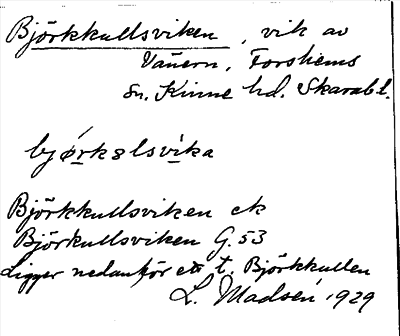 Björkkullsviken, vik av
Vänern, Forshems
sn. Kinne hd. Skarab l.
bjørkɘlsvika
Björkkullsviken ek
Björkullsviken G. 53
Ligger nedanför ett t. Björkkullen
L. Madsén 1929